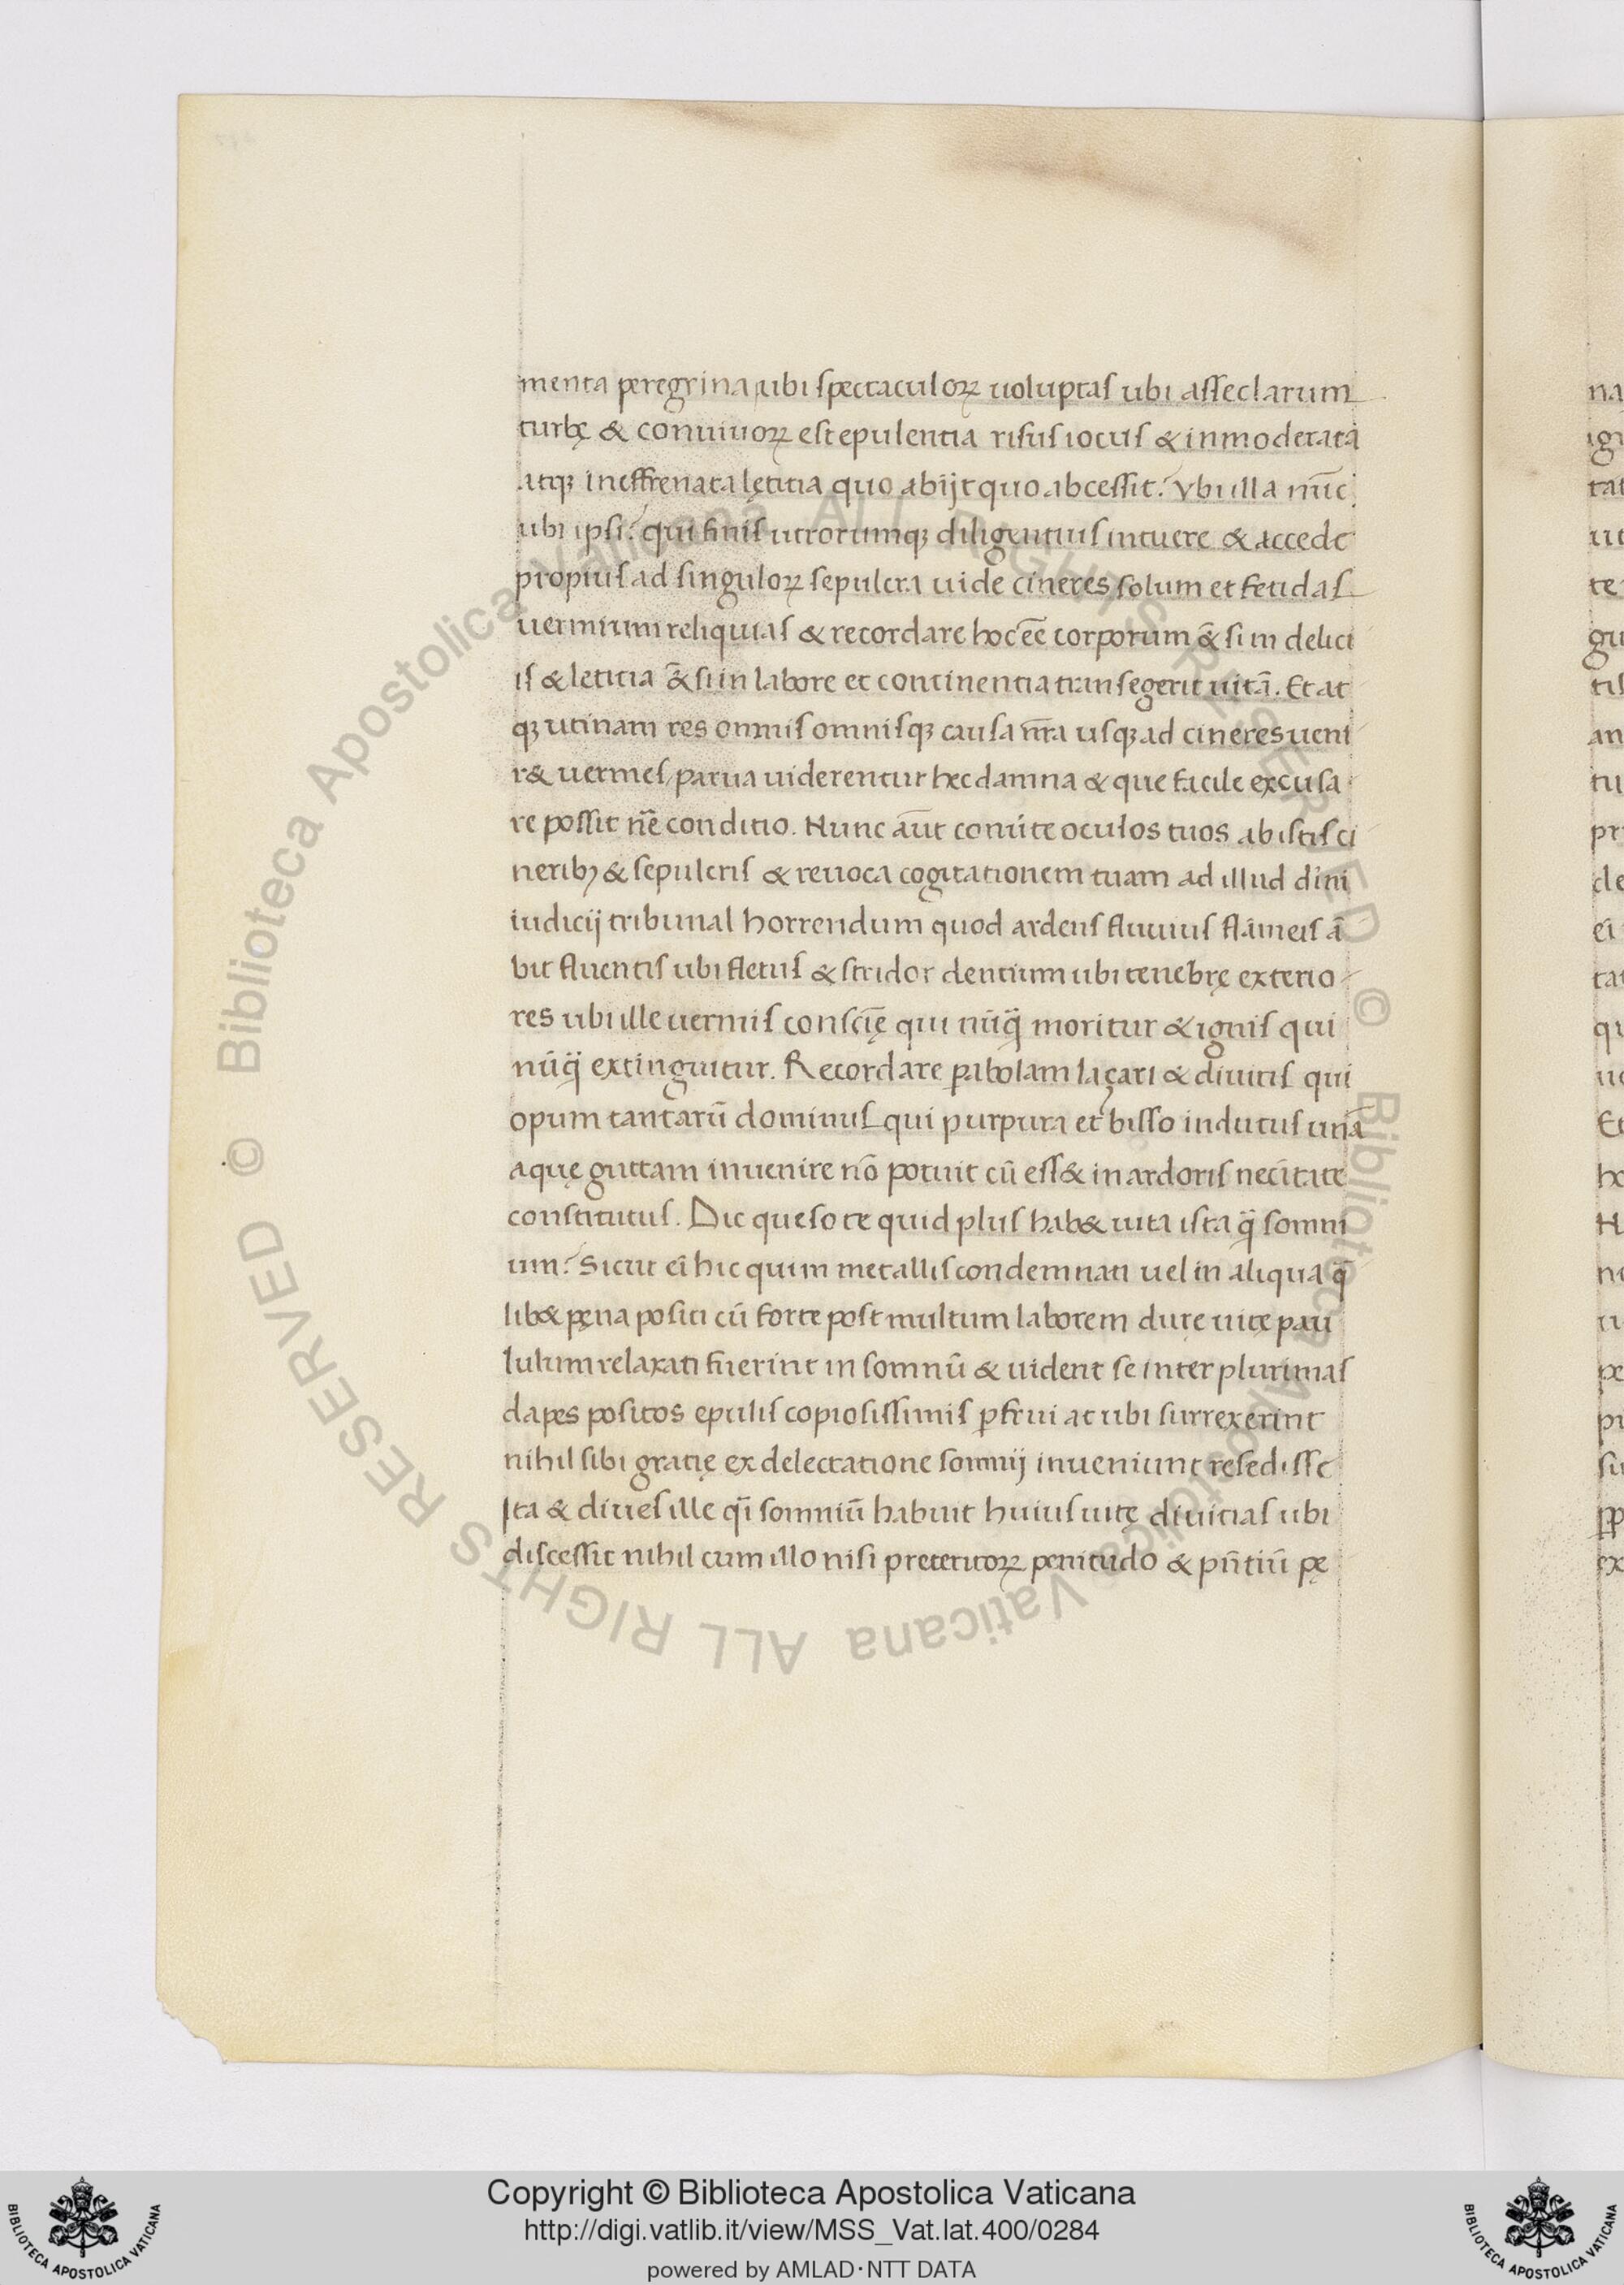 menta peregrina ubi spectaculoꝝ uoluptas ubi asseclarum
turbę & conuiuioꝝ est epulentia risus iocus & inmoderata
atqꝫ ineffrenata lętitia quo abijt quo abcessit? vbi illa nūc
ubi ipsi? qui finis utrorumqꝫ diligentius intuere & accede
propius ad singuloꝝ sepulcra uide cineres solum et fetidas
uermium reliquias & recordare hoc eē corporum &̄ si in delici
is & letitia &̄ si in labore et continentia transegerit uitā. Et at
qꝫ utinam res omnis omnisqꝫ causa nr̄a usqꝫ ad cineres ueni
r& uermes, parua uiderentur hec damna & que facile excusa
re possit nr̄e conditio. Nunc aūt conuīte oculos tuos ab istis ci
neribꝫ & sepulcris & reuoca cogitationem tuam ad illud diui
iudicij tribunal horrendum quod ardens fluuius flāmeis ā
bit fluentis ubi fletus & stridor dentium ubi tenebrę exterio
res ubi ille uermis conscię̄ qui nūq̄ moritur & ignis qui
nūq̄ extinguitur. Recordare ꝑabolam laçari & diuitis qui
opum tantarū dominus qui purpura et bisso indutus unā
aquę guttam inuenire nō potuit cū ess& in ardoris necītate
constitutus. Dic queso te quid plus hab& uita ista q̄ somni
um? Sicut ei̅ hic qui in metallis condemnati uel in aliqua q̄
lib& pęna positi cū forte post multum laborem durę uitę pau
lulum relaxati fuerint in somnū & uident se inter plurimas
dapes positos epulis copiosissimis ꝑfrui at ubi surrexerint
nihil sibi gratię ex delectatione somnij inueniunt resedisse
Ita & diues ille qi̅ somniū habuit huius uitę diuitias ubi
discessit nihil cum illo nisi preteritoꝝ penitudo & pn̄tiū pę
Copyright © Biblioteca Apostolica Vaticana
http://digi.vatlib.it/view/MSS_Vat.lat.400/0284
powered by AMLAD·NTT DATA
BIBLIOTECA APOSTOLICA VATICANA
BIBLIOTECA APOSTOLICA VATICANA
© Biblioteca Apostolica Vaticana ALL RIGHTS RESERVED
© Biblioteca Apostolica Vaticana ALL RIGHTS RESERVED